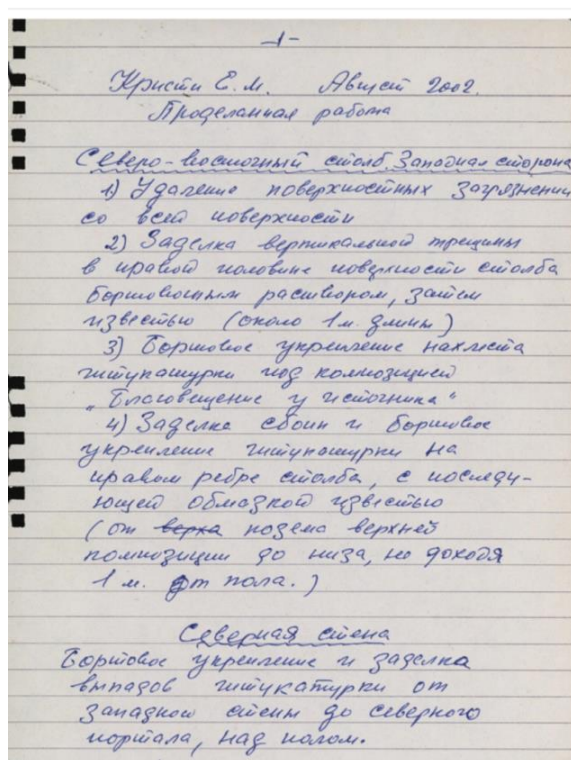 -1-
Кристи Е.М. Август 2002.
Проделанная работа
Северо-восточный столб. Западная сторона
1) Удаление поверхностных загрязнений
со всей поверхности
2) Заделка вертикальной трещины
в правой половине поверхности столба
бортовочным раствором, затем
известью (около 1 м. длины)
3) Бортовое укрепление нахлёста
штукатурки под композицией
„Благовещение у источника"
4) Заделка сбоин и бортовое
укрепление штукатурки на
правом ребре столба, с последу-
ющей обмазкой известью
(от верха позема верхней
композиции до низа, не доходя
1 м. от пола.)
Северная стена
Бортовое укрепление и заделка
выпадов штукатурки от
западной стены до северного
портала, над полом.